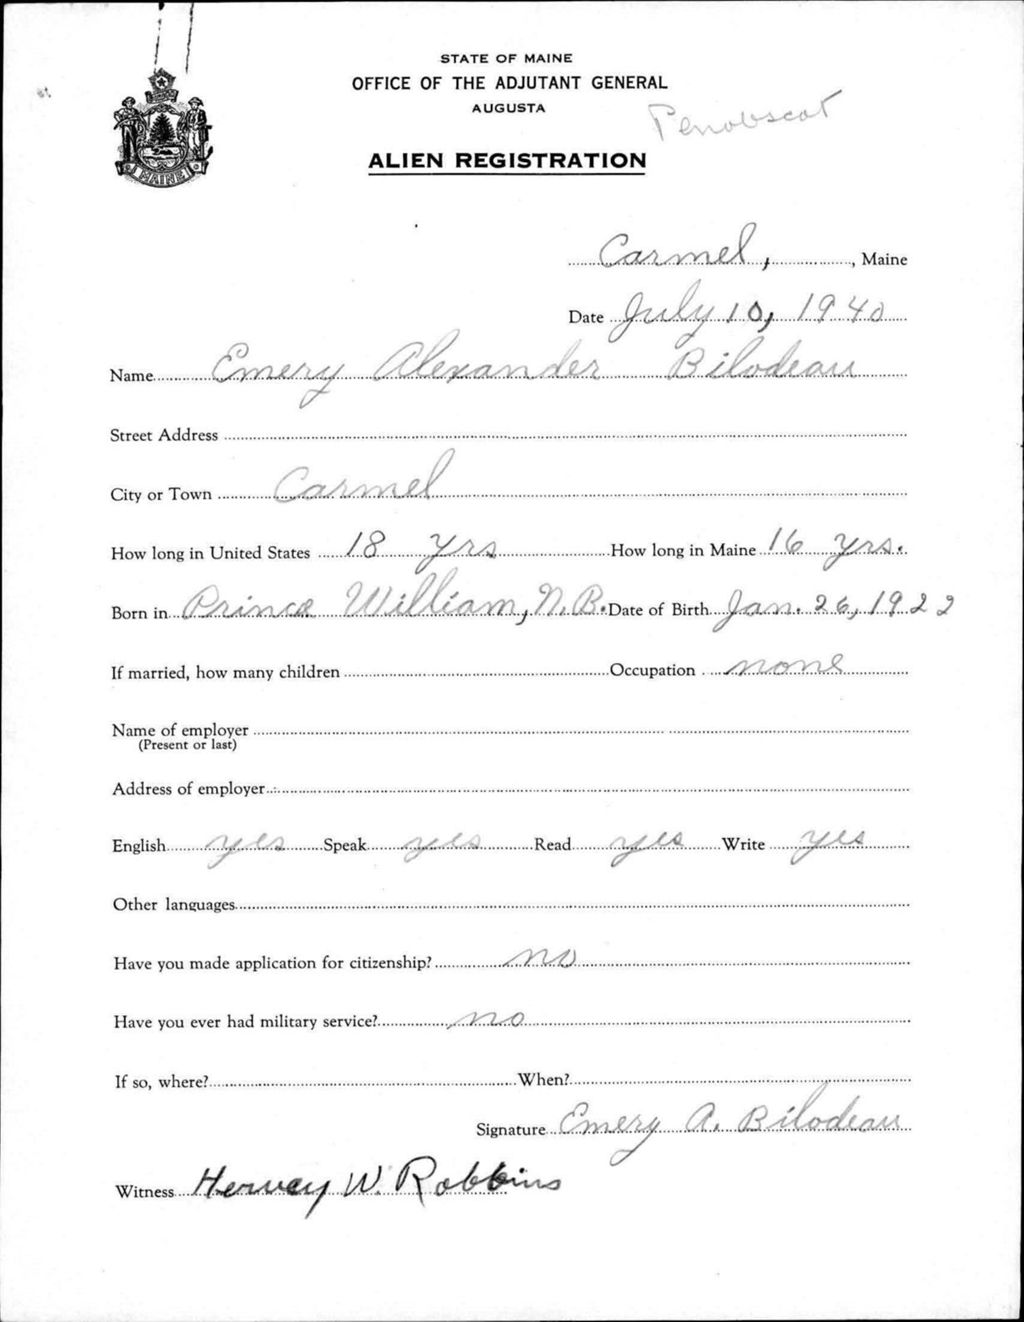 STATE OF MAINE
OFFICE OF THE ADJUTANT GENERAL
AUGUSTA
Penobscot
ALIEN REGISTRATION
MAINE
Carmel, , Maine
Date July 10, 1940
Name Emery Alexander Bilodeau
Street Address
City or Town Carmel
How long in United States 18 yrs How long in Maine 16 yrs.
Born in Prince William, N.B. Date of Birth Jan. 26, 1922
If married, how many children Occupation none
Name of employer
(Present or last)
Address of employer
English yes Speak yes Read yes Write yes
Other languages
Have you made application for citizenship? no
Have you ever had military service? no
If so, where? When?
Signature Emery A. Bilodeau
Witness Hervey W. Robbins